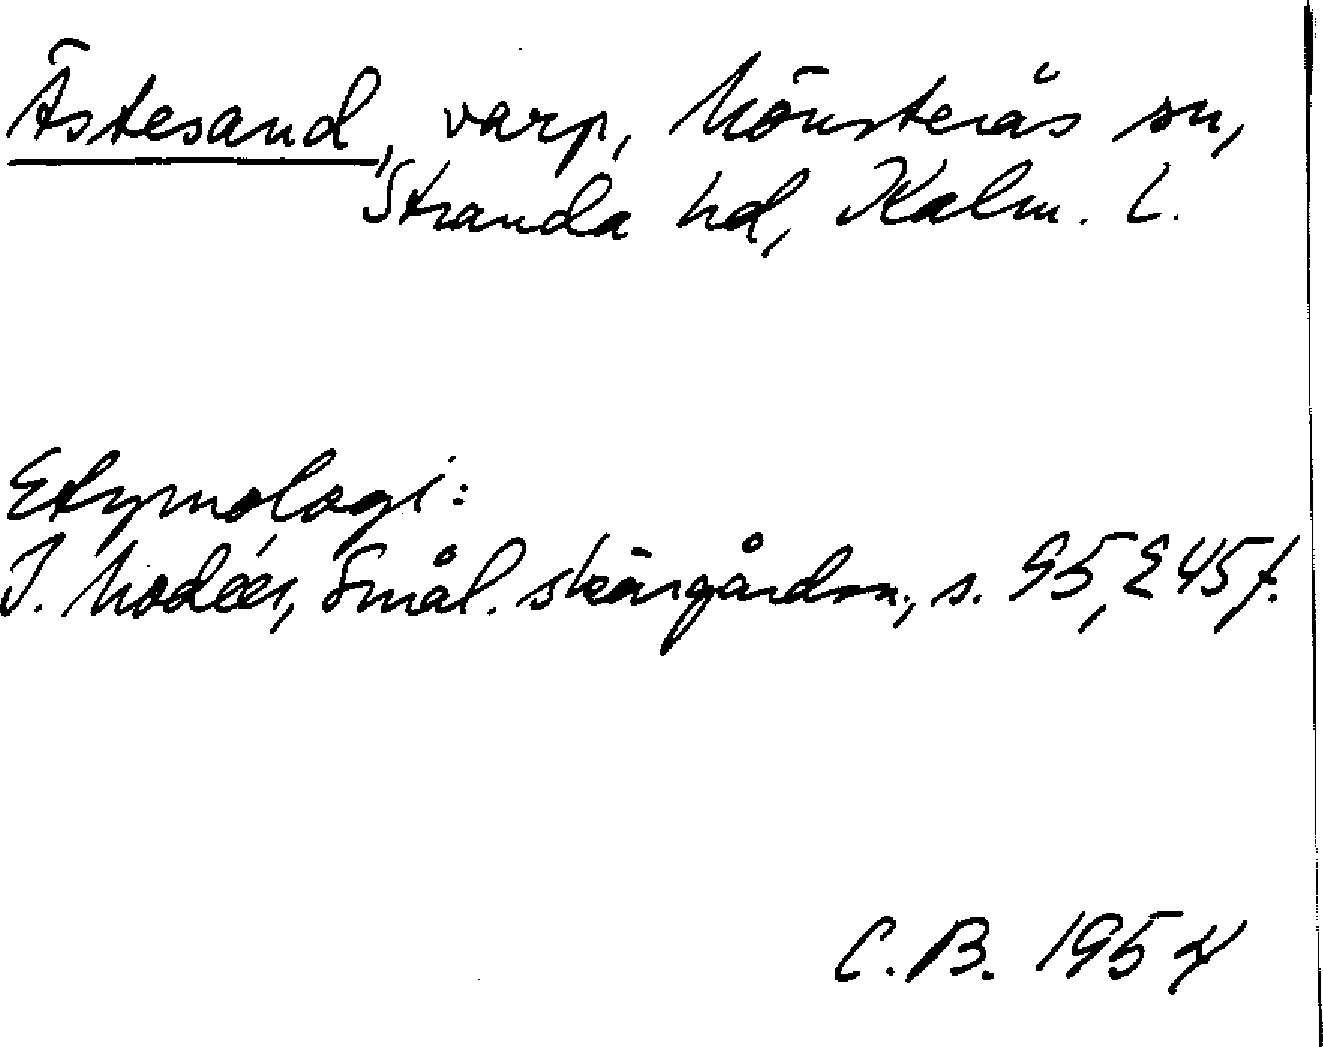 Ästesand, varp, Mönsterås sn,
Stranda hd, Kalm. l.
Etymologi:
I. Modéer, Smål. skärgårdsn., s. 95, 245 f.
C. B. 1957